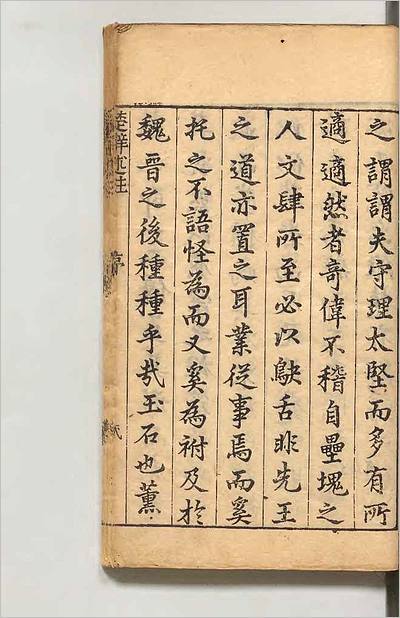 之謂謂夫守理太堅而多有所
適適然者奇偉不稽自壘塊之
人文肆所至必以鴃舌非先王
之道亦置之耳業從事焉而奚
托之不語怪為而又奚為祔及於
魏晉之後種種乎㢤玉石也薰
楚辭述註